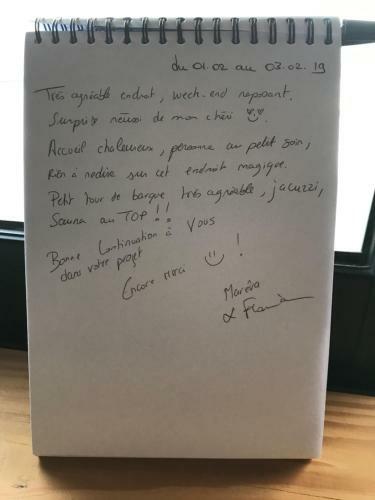 du 01.02 au 03.02.19
Très agréable endroit, week-end reposant.
Surprise réussi de mon chéri
Accueil chaleureux, personne au petit soin,
Rien à redire sur cet endroit magique.
Petit tour de barque très agréable, jacuzzi,
Sauna au TOP !!
Bonne Continuation à Vous
dans votre projet
Encore Merci !
Maréva
&